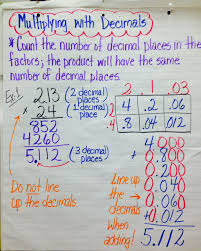 Multiplying with Decimals
* Count the number of decimal places in the
factors; the product will have the same
number of decimal places.
2.13 (2 decimal places)
x 2.4 (1 decimal place)
852
4260
5.112 (3 decimal places)
Do not line
up the decimals
2 .1 .03
2 4 .2 .06
.4 .8 .04 .012
Line up
the
decimals
when
adding!
4.000
0.800
0.200
0.040
0.060
+0.012
5.112